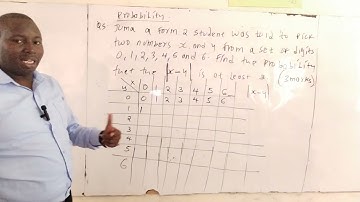 Probability.
Q5. Juma a form 2 student was told to pick
two numbers x and y from a set of digits
0, 1, 2, 3, 4, 5 and 6. Find the probability
that the |x-y| is at least 3. (3marks)
y x 0 1 2 3 4 5 6 |x-y|
0 0 1 2 3 4 5 6
1 1
2
3
4
5
6